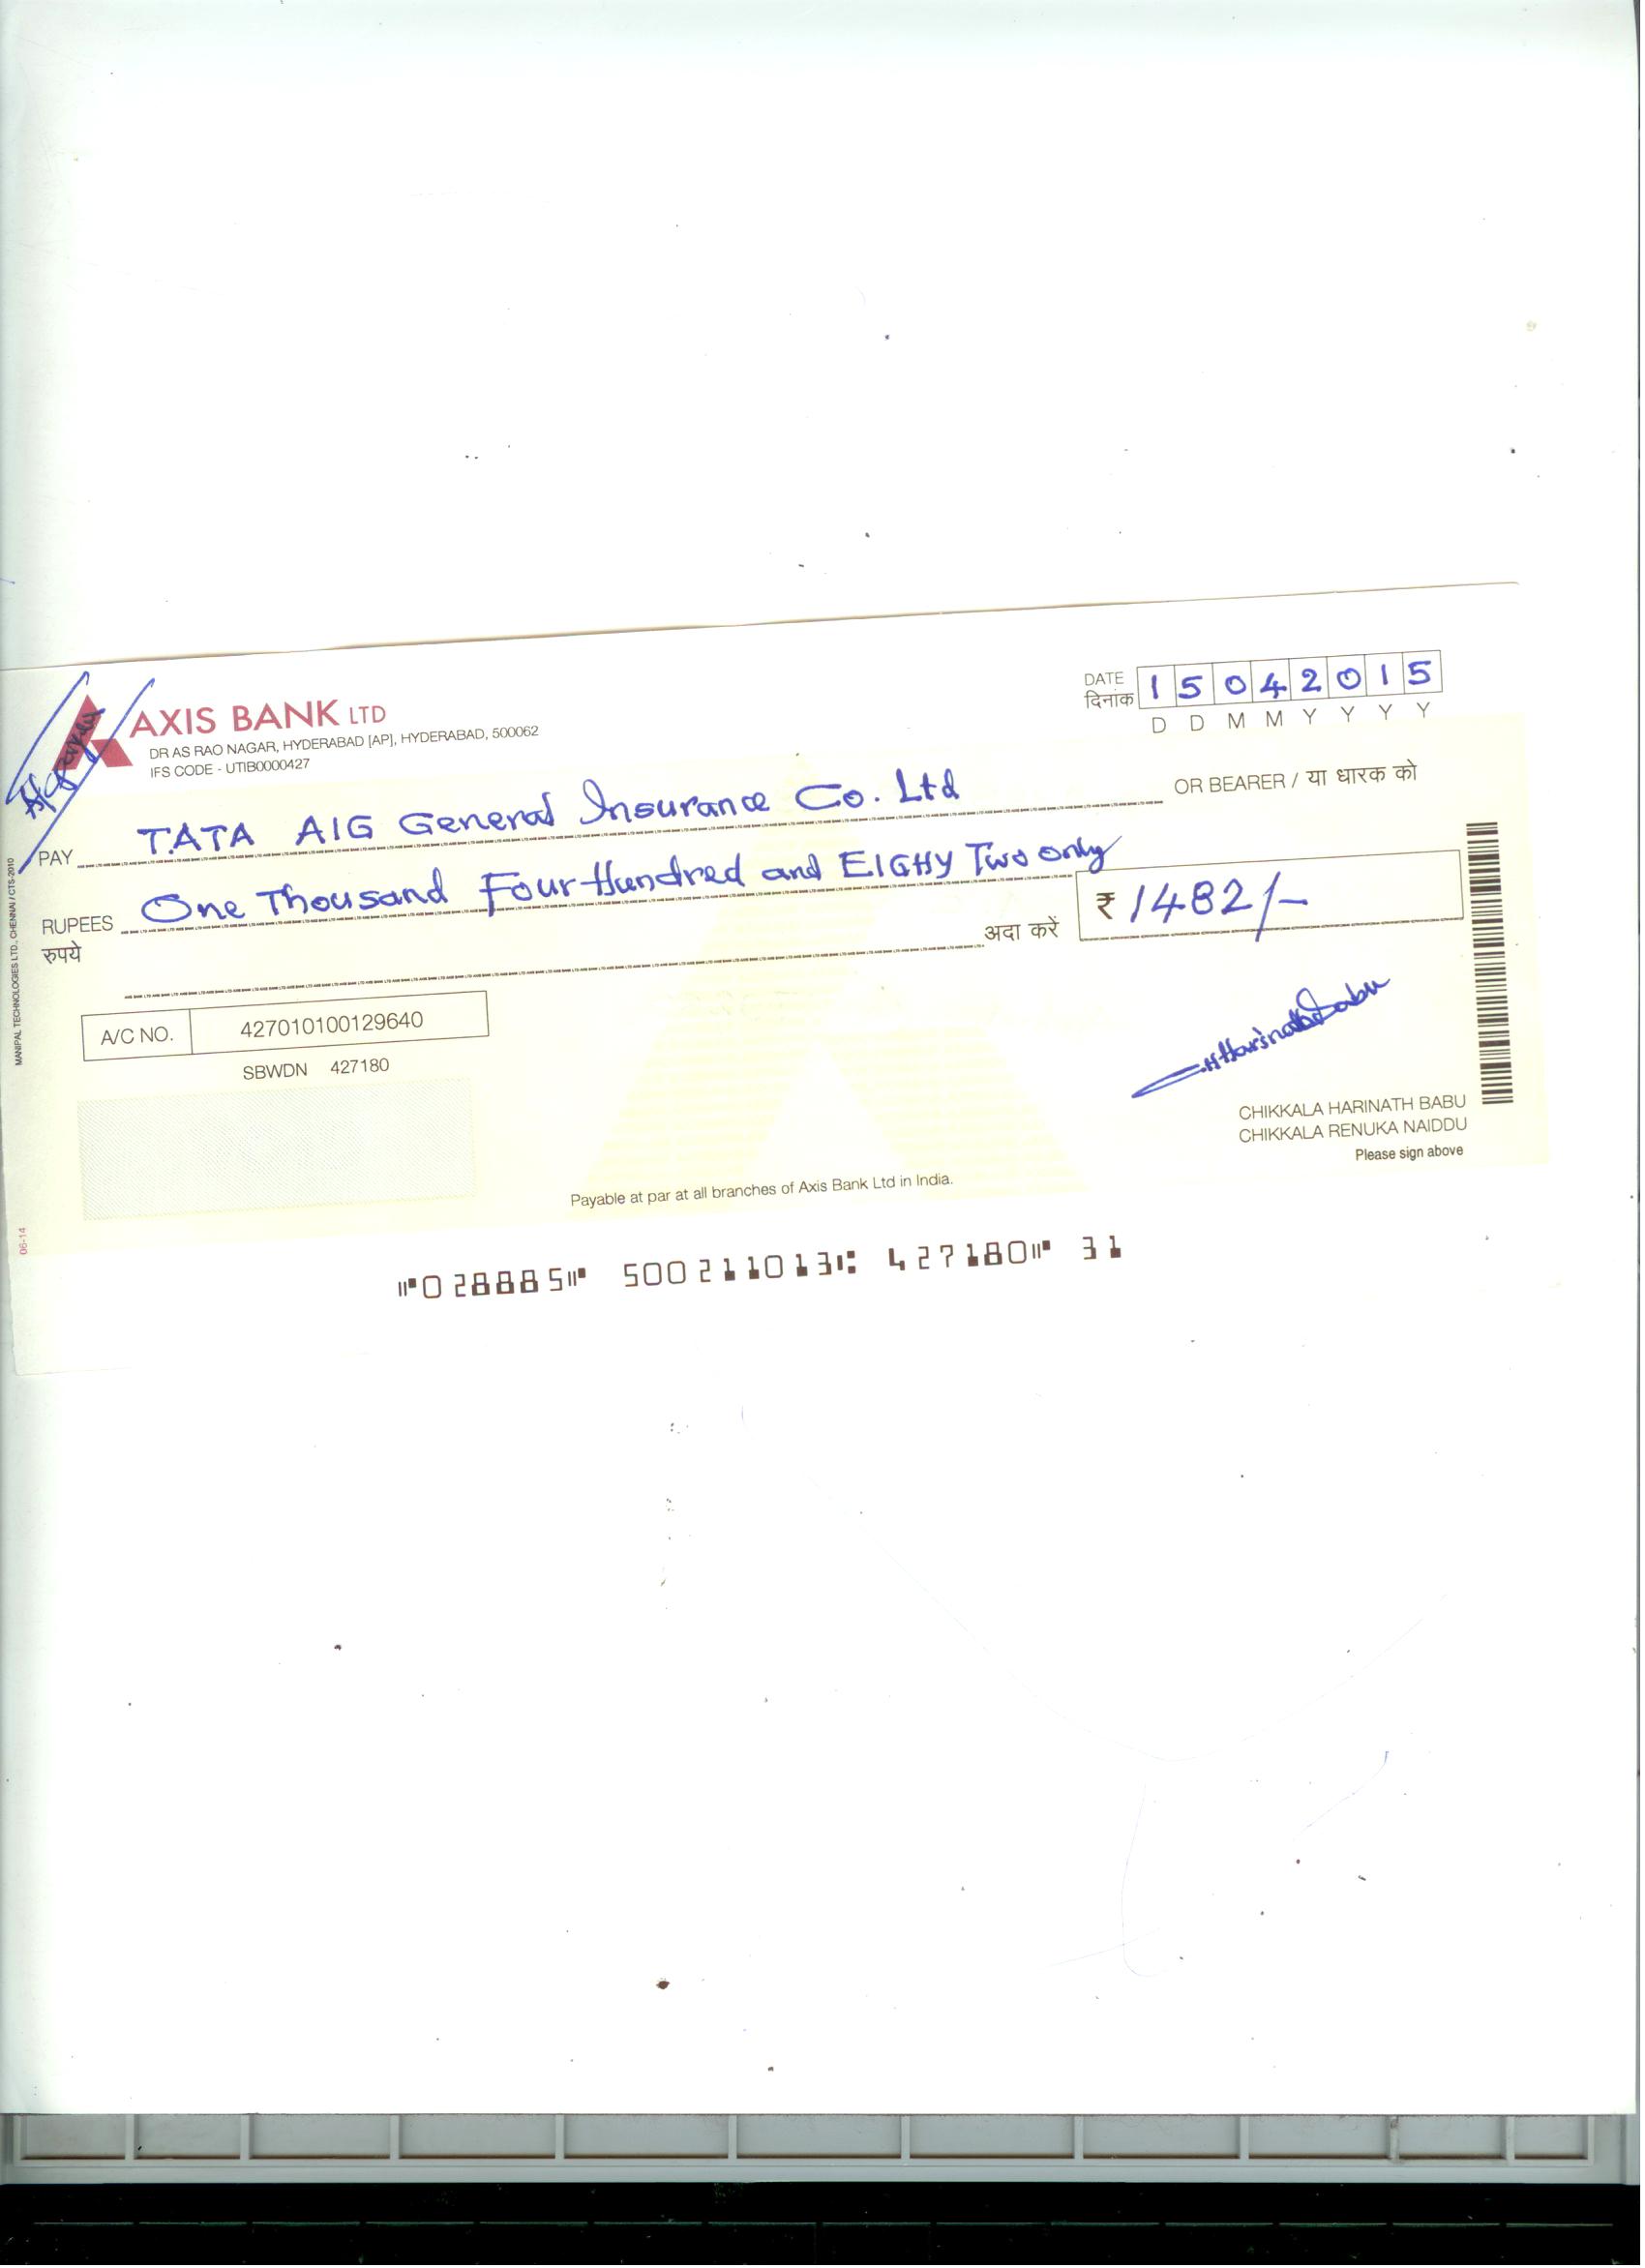 A/c payee
AXIS BANK LTD
DR AS RAO NAGAR, HYDERABAD [AP], HYDERABAD, 500062
IFS CODE - UTIB0000427
DATE
दिनांक
1 5 0 4 2 0 1 5
D D M M Y Y Y Y
PAY TATA AIG General Insurance Co. Ltd OR BEARER / या धारक को
RUPEES One Thousand Four Hundred and EIGHY Two only
रुपये
अदा करें ₹ 1482/-
A/C NO. 427010100129640
SBWDN 427180
CH Harinath Babu
CHIKKALA HARINATH BABU
CHIKKALA RENUKA NAIDDU
Please sign above
Payable at par at all branches of Axis Bank Ltd in India.
⑈028885⑈ 500211013⑆ 427180⑈ 31
MANIPAL TECHNOLOGIES LTD., CHENNAI / CTS-2010
06-14